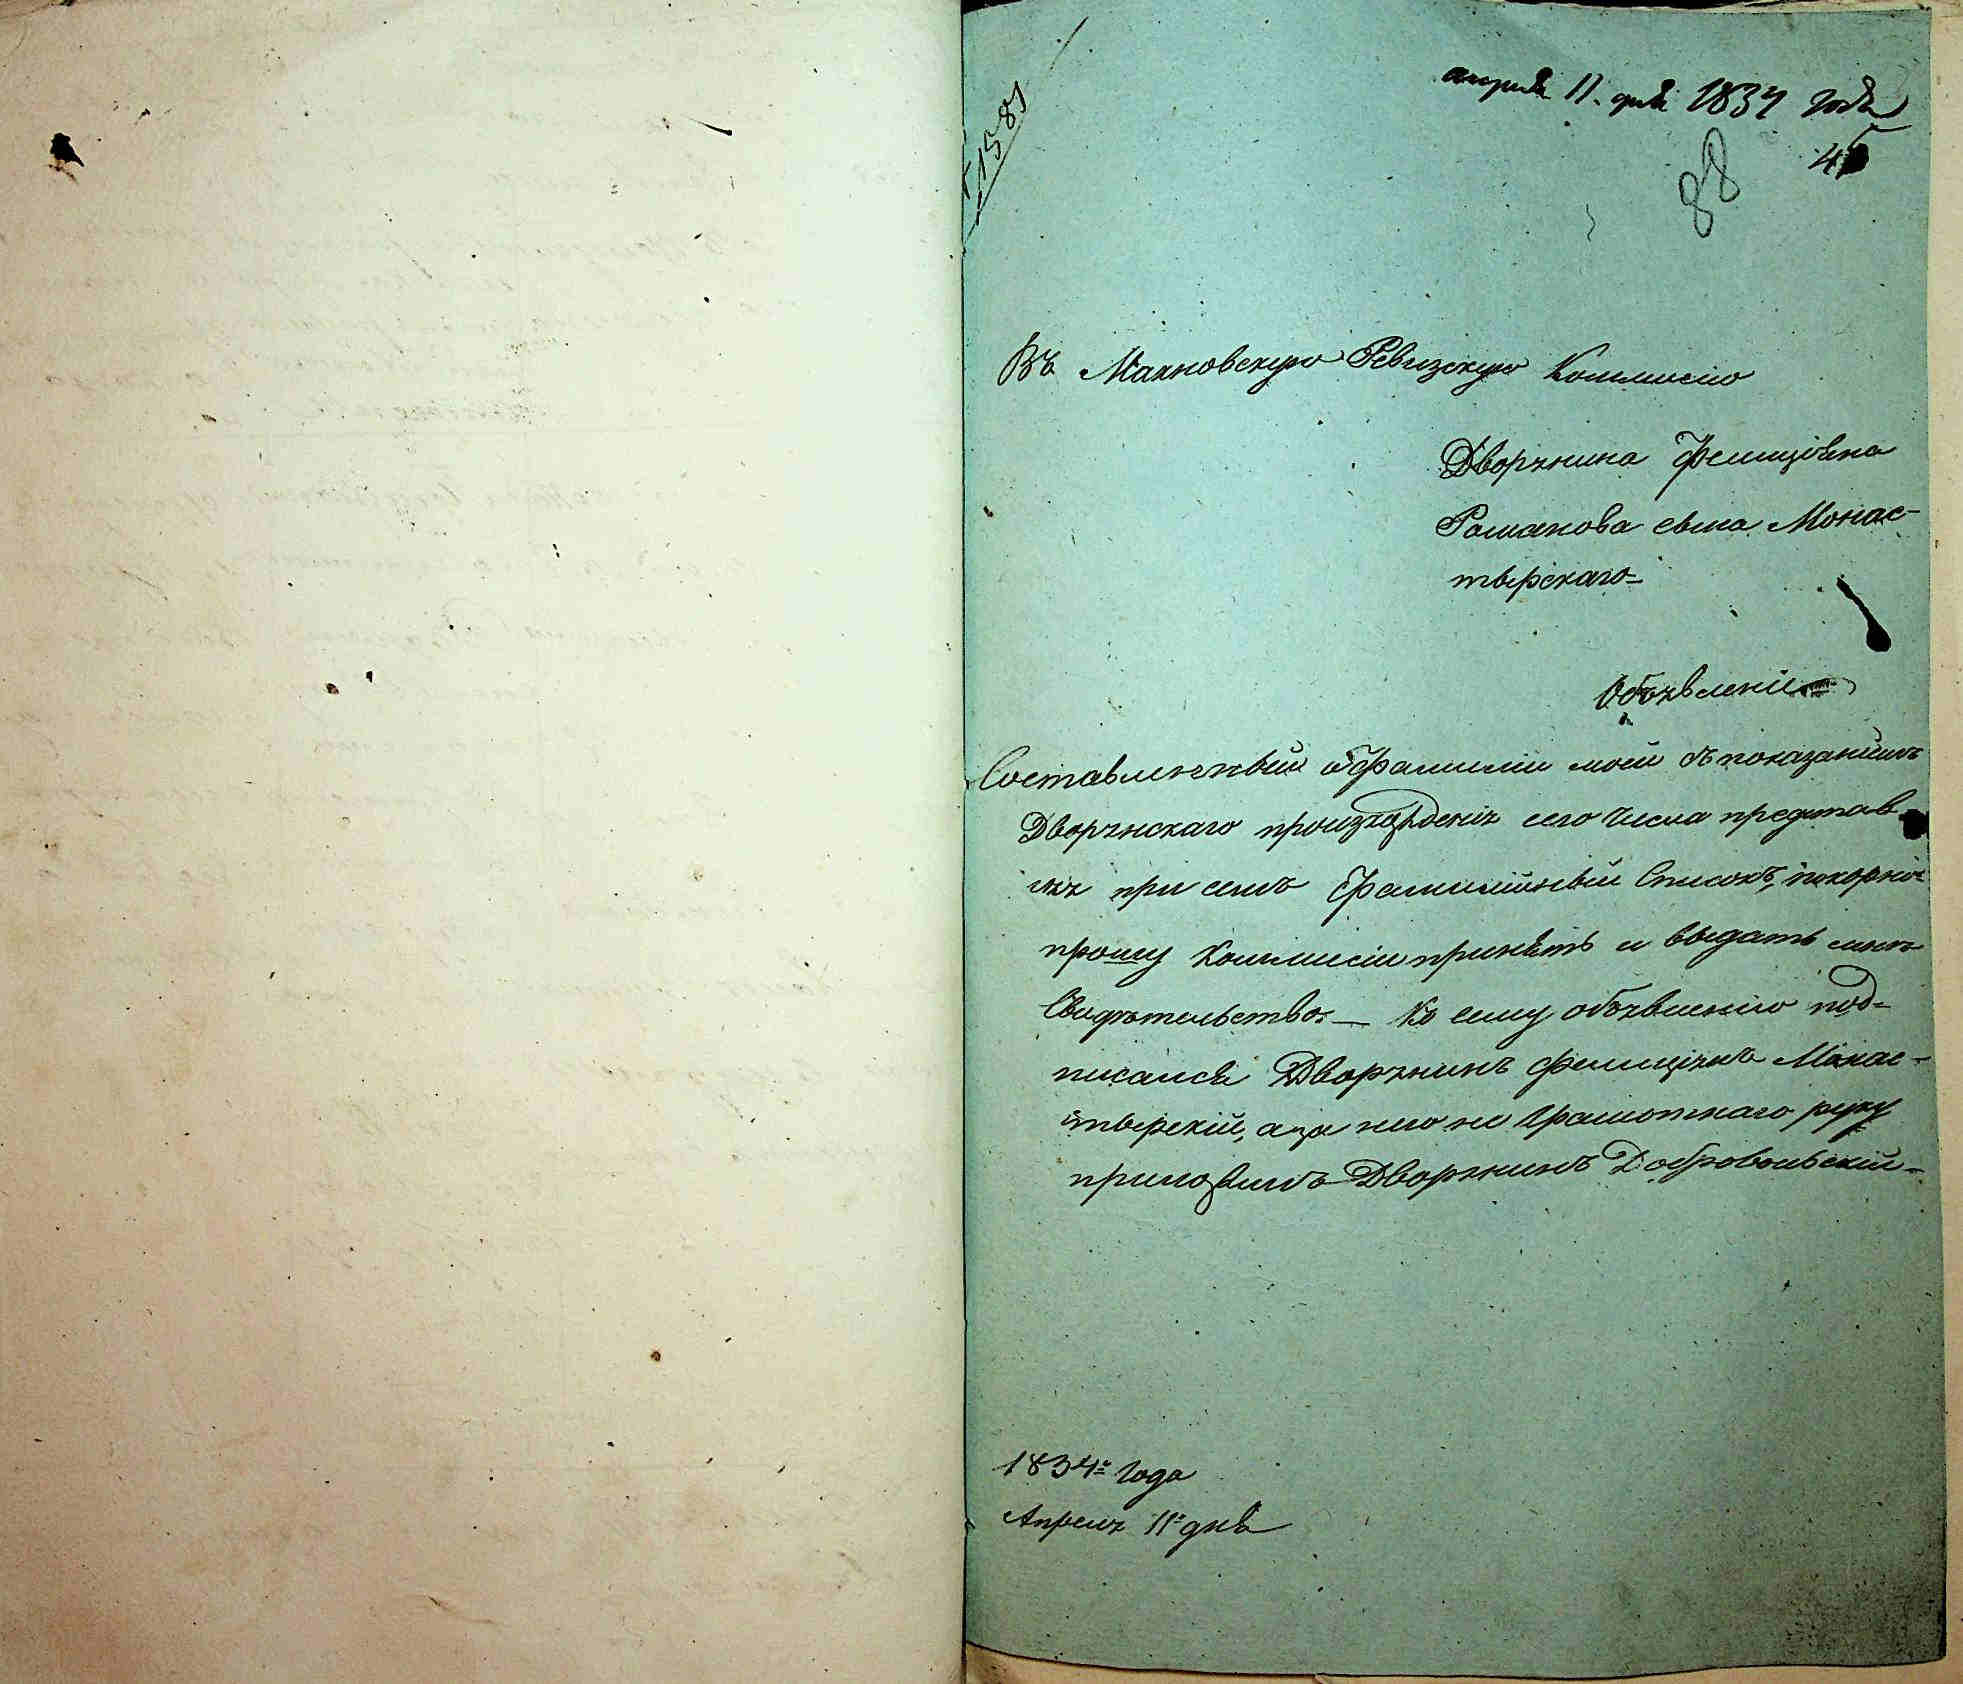 апреля 11. дня 1834 года
45
1581
88
Въ Махновскую Ревизскую Коммисію
Дворянина Фелиціяна
Романова сына Монас-
тырскаго
Объявленіе
Составленный о Фамиліи моей съ показаніемъ
Дворянскаго произхожденія сего числа представ-
ляя при семъ Фамилійный Списокъ, покорно
прошу Коммисіи принять и выдать мнѣ
Свидѣтельство. — Ко сему объявленію под-
писался Дворянинъ Фелиціянъ Монас-
тырскій, а за него не грамотнаго руку
приложилъ Дворянинъ Добровольскій
1834го Года
Апреля 11го дня